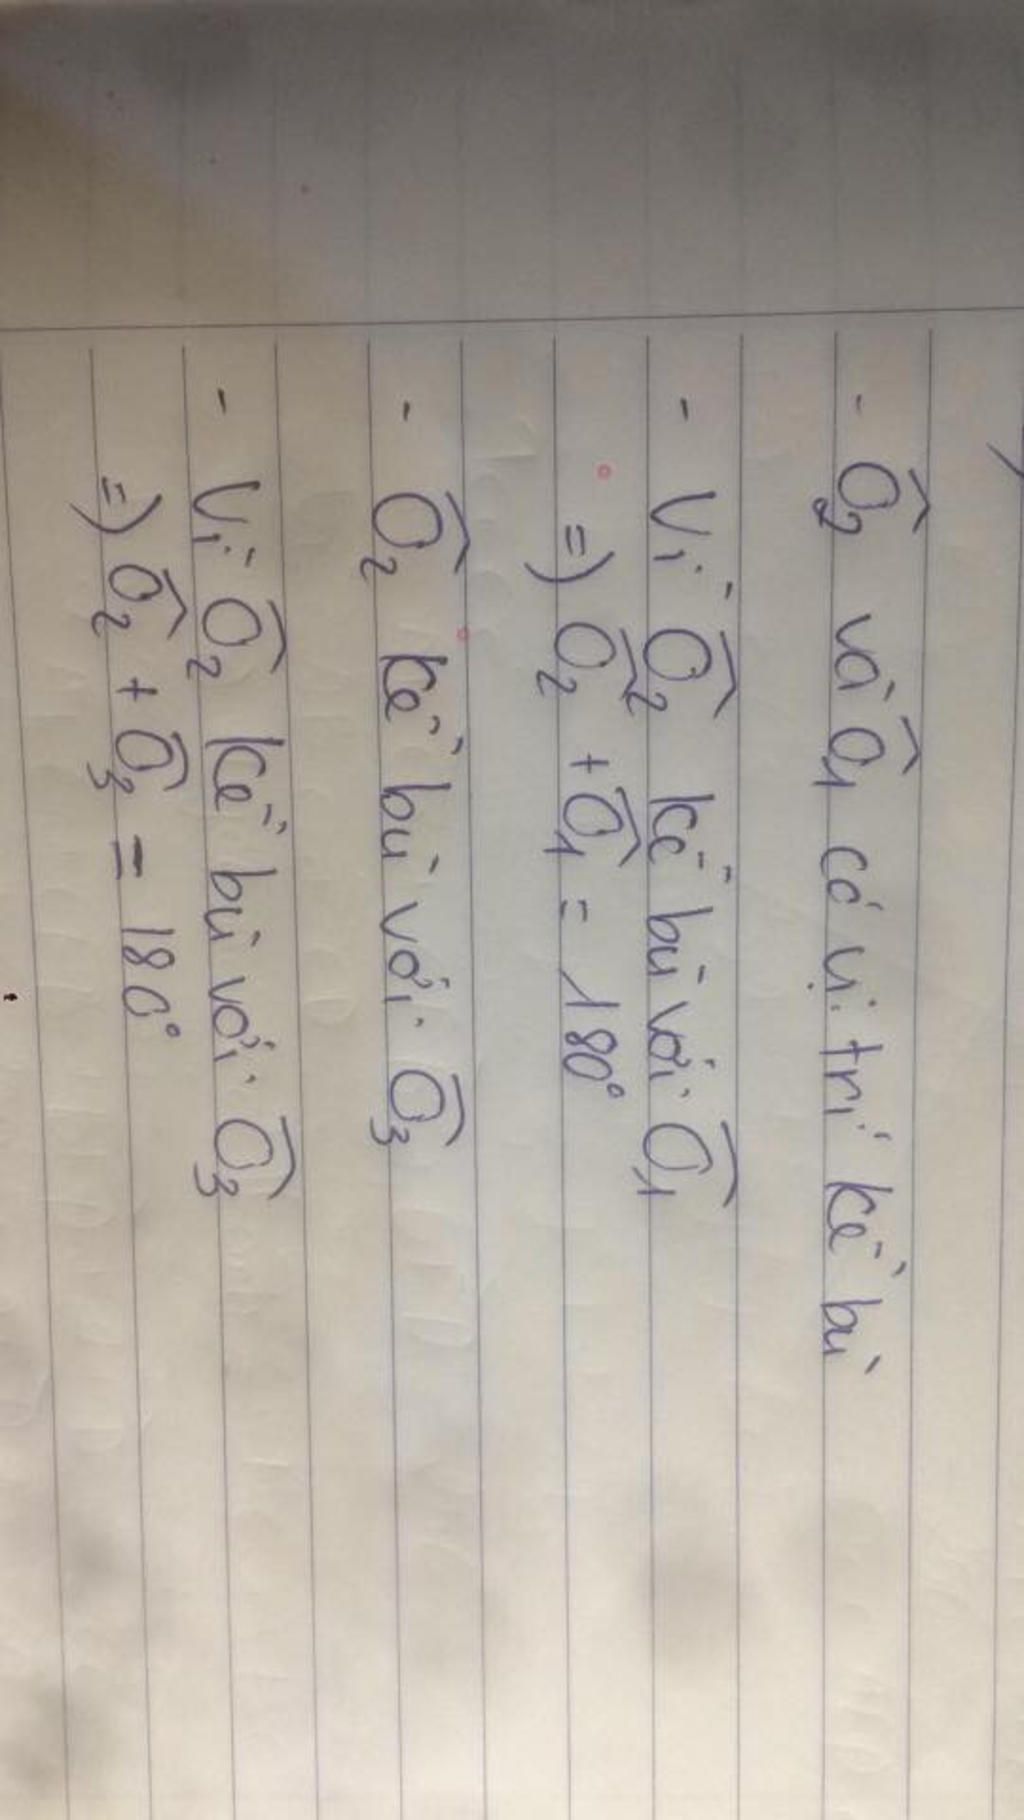 - Ô₂ và Ô₁ có vị trí kề bù
- Vì Ô₂ kề bù với Ô₁
=) Ô₂ + Ô₁ = 180°
- Ô₂ kề bù với Ô₃
- Vì Ô₂ kề bù với Ô₃
=) Ô₂ + Ô₃ = 180°